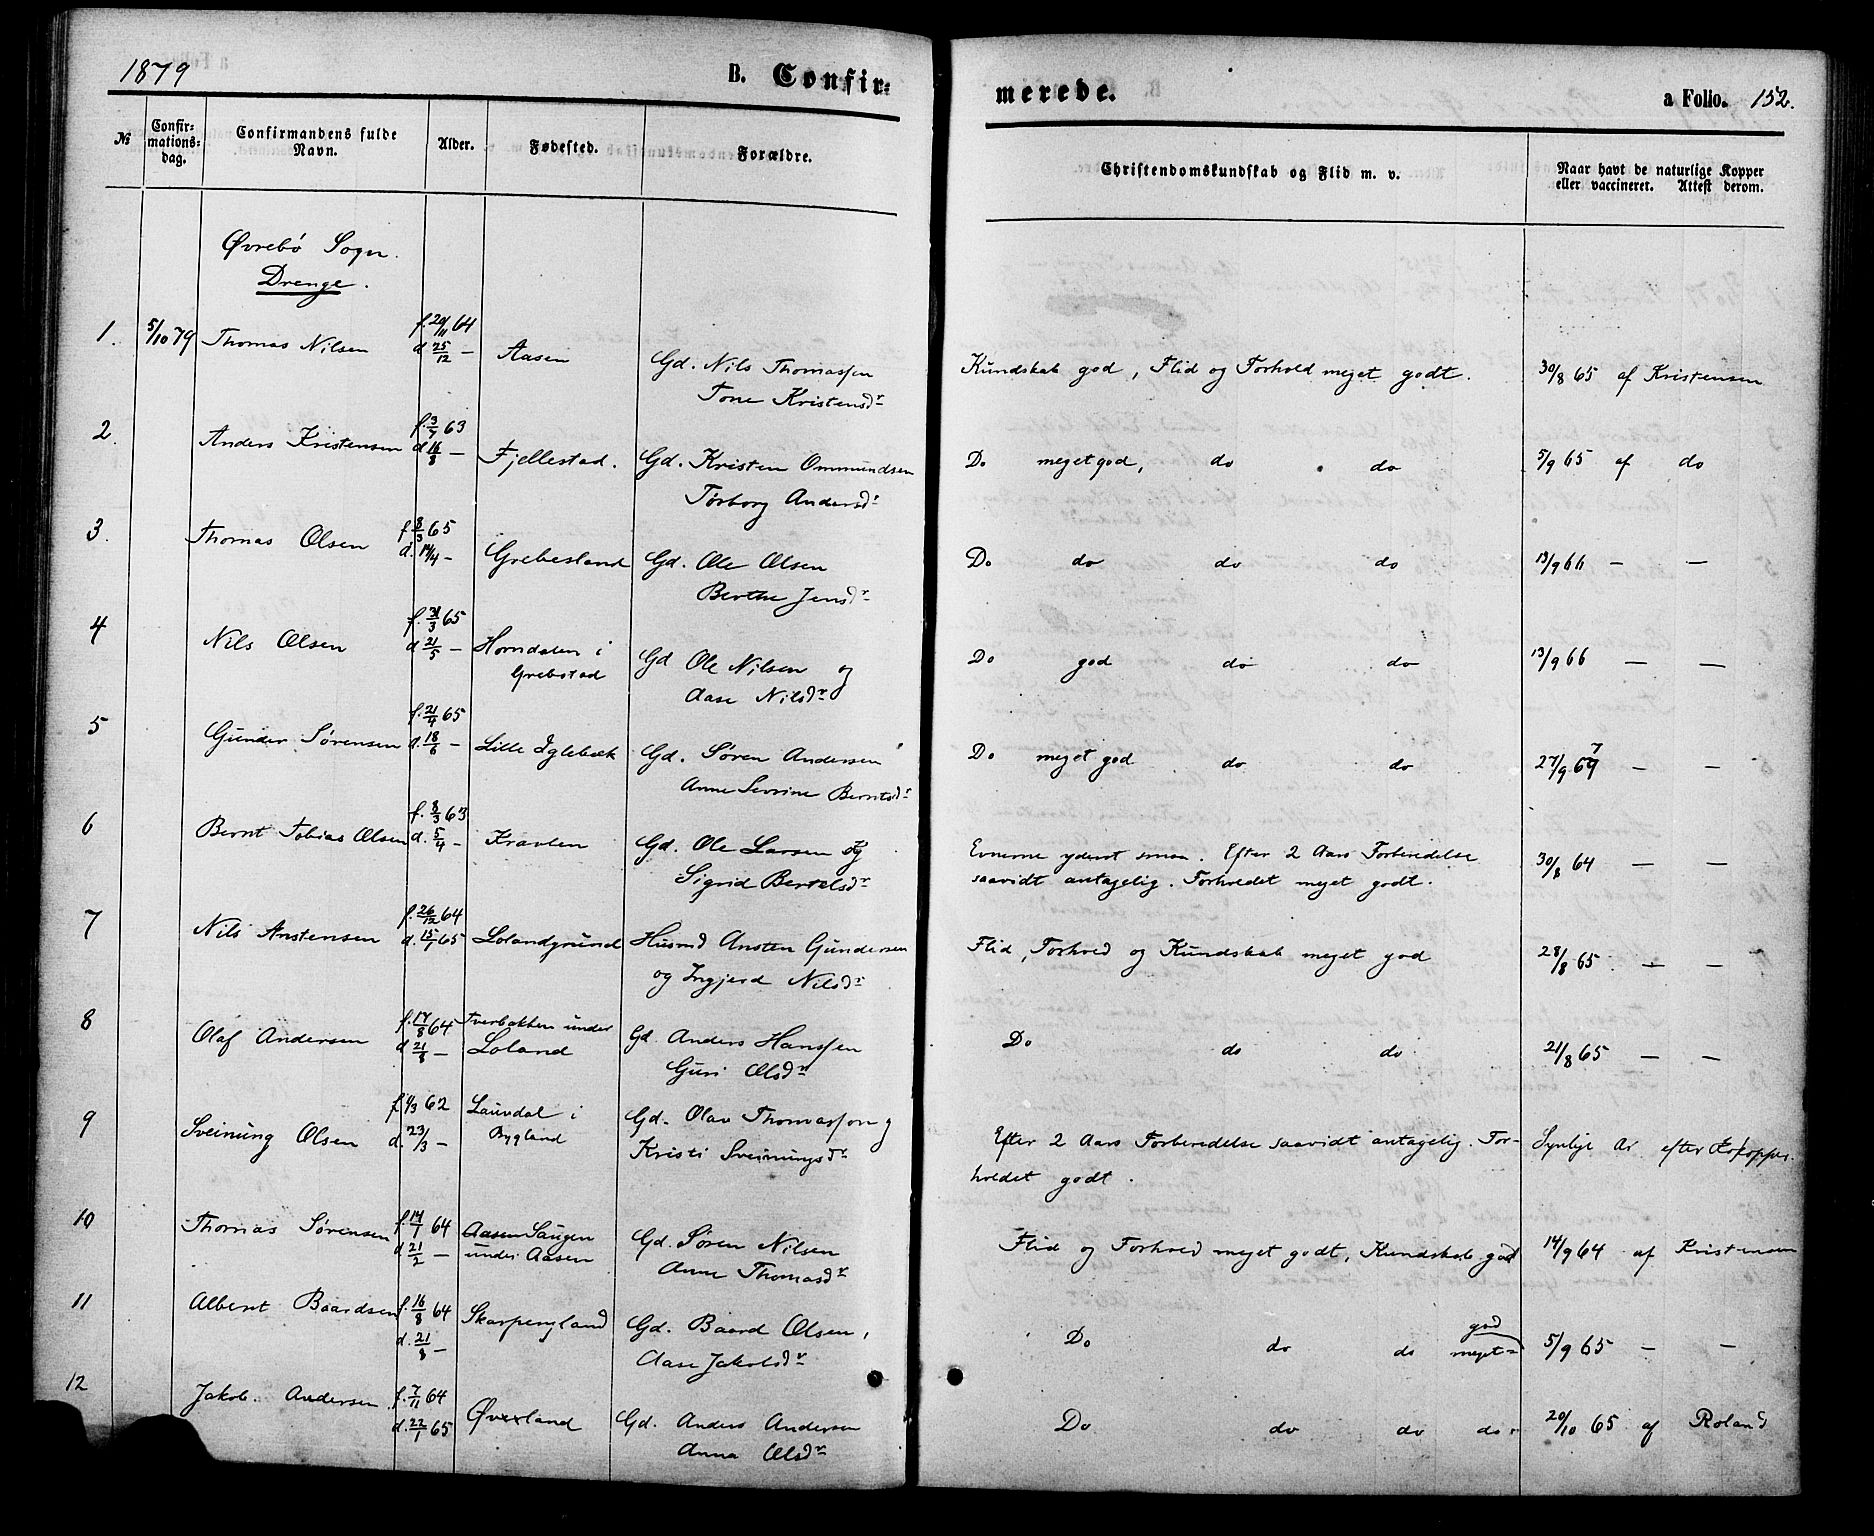 1879 B. Confir-
merede. a Folio. 152.
№ Confir-mations-dag. Confirmandens fulde Navn. Alder. Fødested. Forældre. Christendomskundskab og Flid m. v. Naar havt de naturlige Kopper eller vaccineret. Attest derom.
Øvrebø Sogn.
Drenge.
1. 5/10 79 Thomas Nilsen f. 20/11 64 d. 25/12 — Aasen Gd. Nils Thomassen Kundskab god, Flid og Forhold meget godt. 30/8 65 af Kristensen
Tone Kristensdr
2. Anders Kristensen f. 3/7 63 d. 16/8 — Fjellestad. Gd. Kristen Ommundsen Do meget god, do do 5/9 65 af do
Torborg Andersdr
3. Thomas Olsen f. 8/3 65 d. 14/4 — Grebesland Gd. Ole Olsen Do do do do 13/9 66 — —
Berthe Jensdr
4 Nils Olsen f. 31/3 65 d. 21/5 — Homdalen i Gd Ole Nilsen og Do god do do 13/9 66 — —
Grebstad Aase Nilsdr
5 Gunder Sørensen f. 21/4 65 d. 18/6 — Lille Iglebæk Gd. Søren Andersen Do meget god do do 27/9 67 — —
Anne Sevrine Berntsdr
6 Bernt Tobias Olsen f. 8/3 63 d. 5/4 — Gd. Ole Larsen og Evnerne yderst smaa. Efter 2 Aars Forberedelse 30/8 64 — —
Sigrid Bertelsdr saavidt antagelig. Forholdet meget godt.
7 Nils Anstensen f. 26/12 64 d. 15/1 65 Lolandgrund Husmd Ansten Gundersen Flid, Forhold og Kundskab meget god 28/8 65 — —
og Ingjerd Nilsdr
8 Olaf Andersen f. 17/8 64 d. 21/8 — Tverbakken under Gd. Anders Hanssen Do do do 21/8 65 — —
Loland Guri Olsdr
9 Sveinung Olsen f. 1/3 62 d. 23/3 — Lauvdal i Gd. Olav Thomasson og Efter 2 Aars Forberedelse saavidt antagelig. For- Synlige Ar efter Kokopper.
Bygland Kristi Sveinungsdr holdet godt.
10 Thomas Sørensen f. 14/1 64 d. 21/2 — Aasen Haugen Gd. Søren Nilsen Flid og Forhold meget godt, Kundskab god 14/9 64 af Kristensen
under Aasen Anne Thomasdr
11 Albert Baardsen f. 16/8 64 d. 21/8 — Skarpengland Gd. Baard Olsen, Do do do meget god 5/9 65 — —
Aase Jakobsdr
12 Jakob Andersen f. 7/11 64 d. 22/1 65 Øvreland Gd. Anders Andersen Do do do do 20/10 65 af Roland
Anna Olsdr